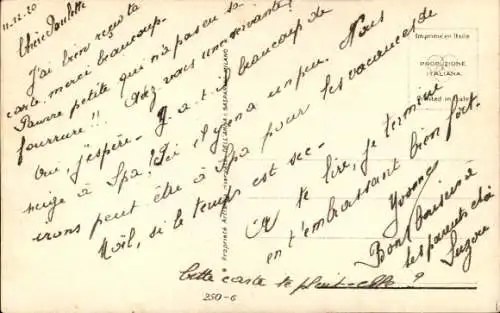 11-12-20
Chère Paulette
J'ai bien reçu ta
carte, merci beaucoup.
Pauvre petite qui n'a pas eu sa
fourrure!! Avez vous une servante?
Oui, j'espère. Y a-t-il beaucoup de
neige à Spa! Ici il y en a un peu. Nous
irons peut être à Spa pour les vacances de
Noël, si le temps est sec
A te lire, je termine
en t'embrassant bien fort.
Yvonne
Bons baisers à
tes parents et à
Suzon
Cette carte te plait-elle?
250-6
Imprimé en Italie
PRODUZIONE
ITALIANA
Printed in Italy
Proprietà Artistica
MILANO